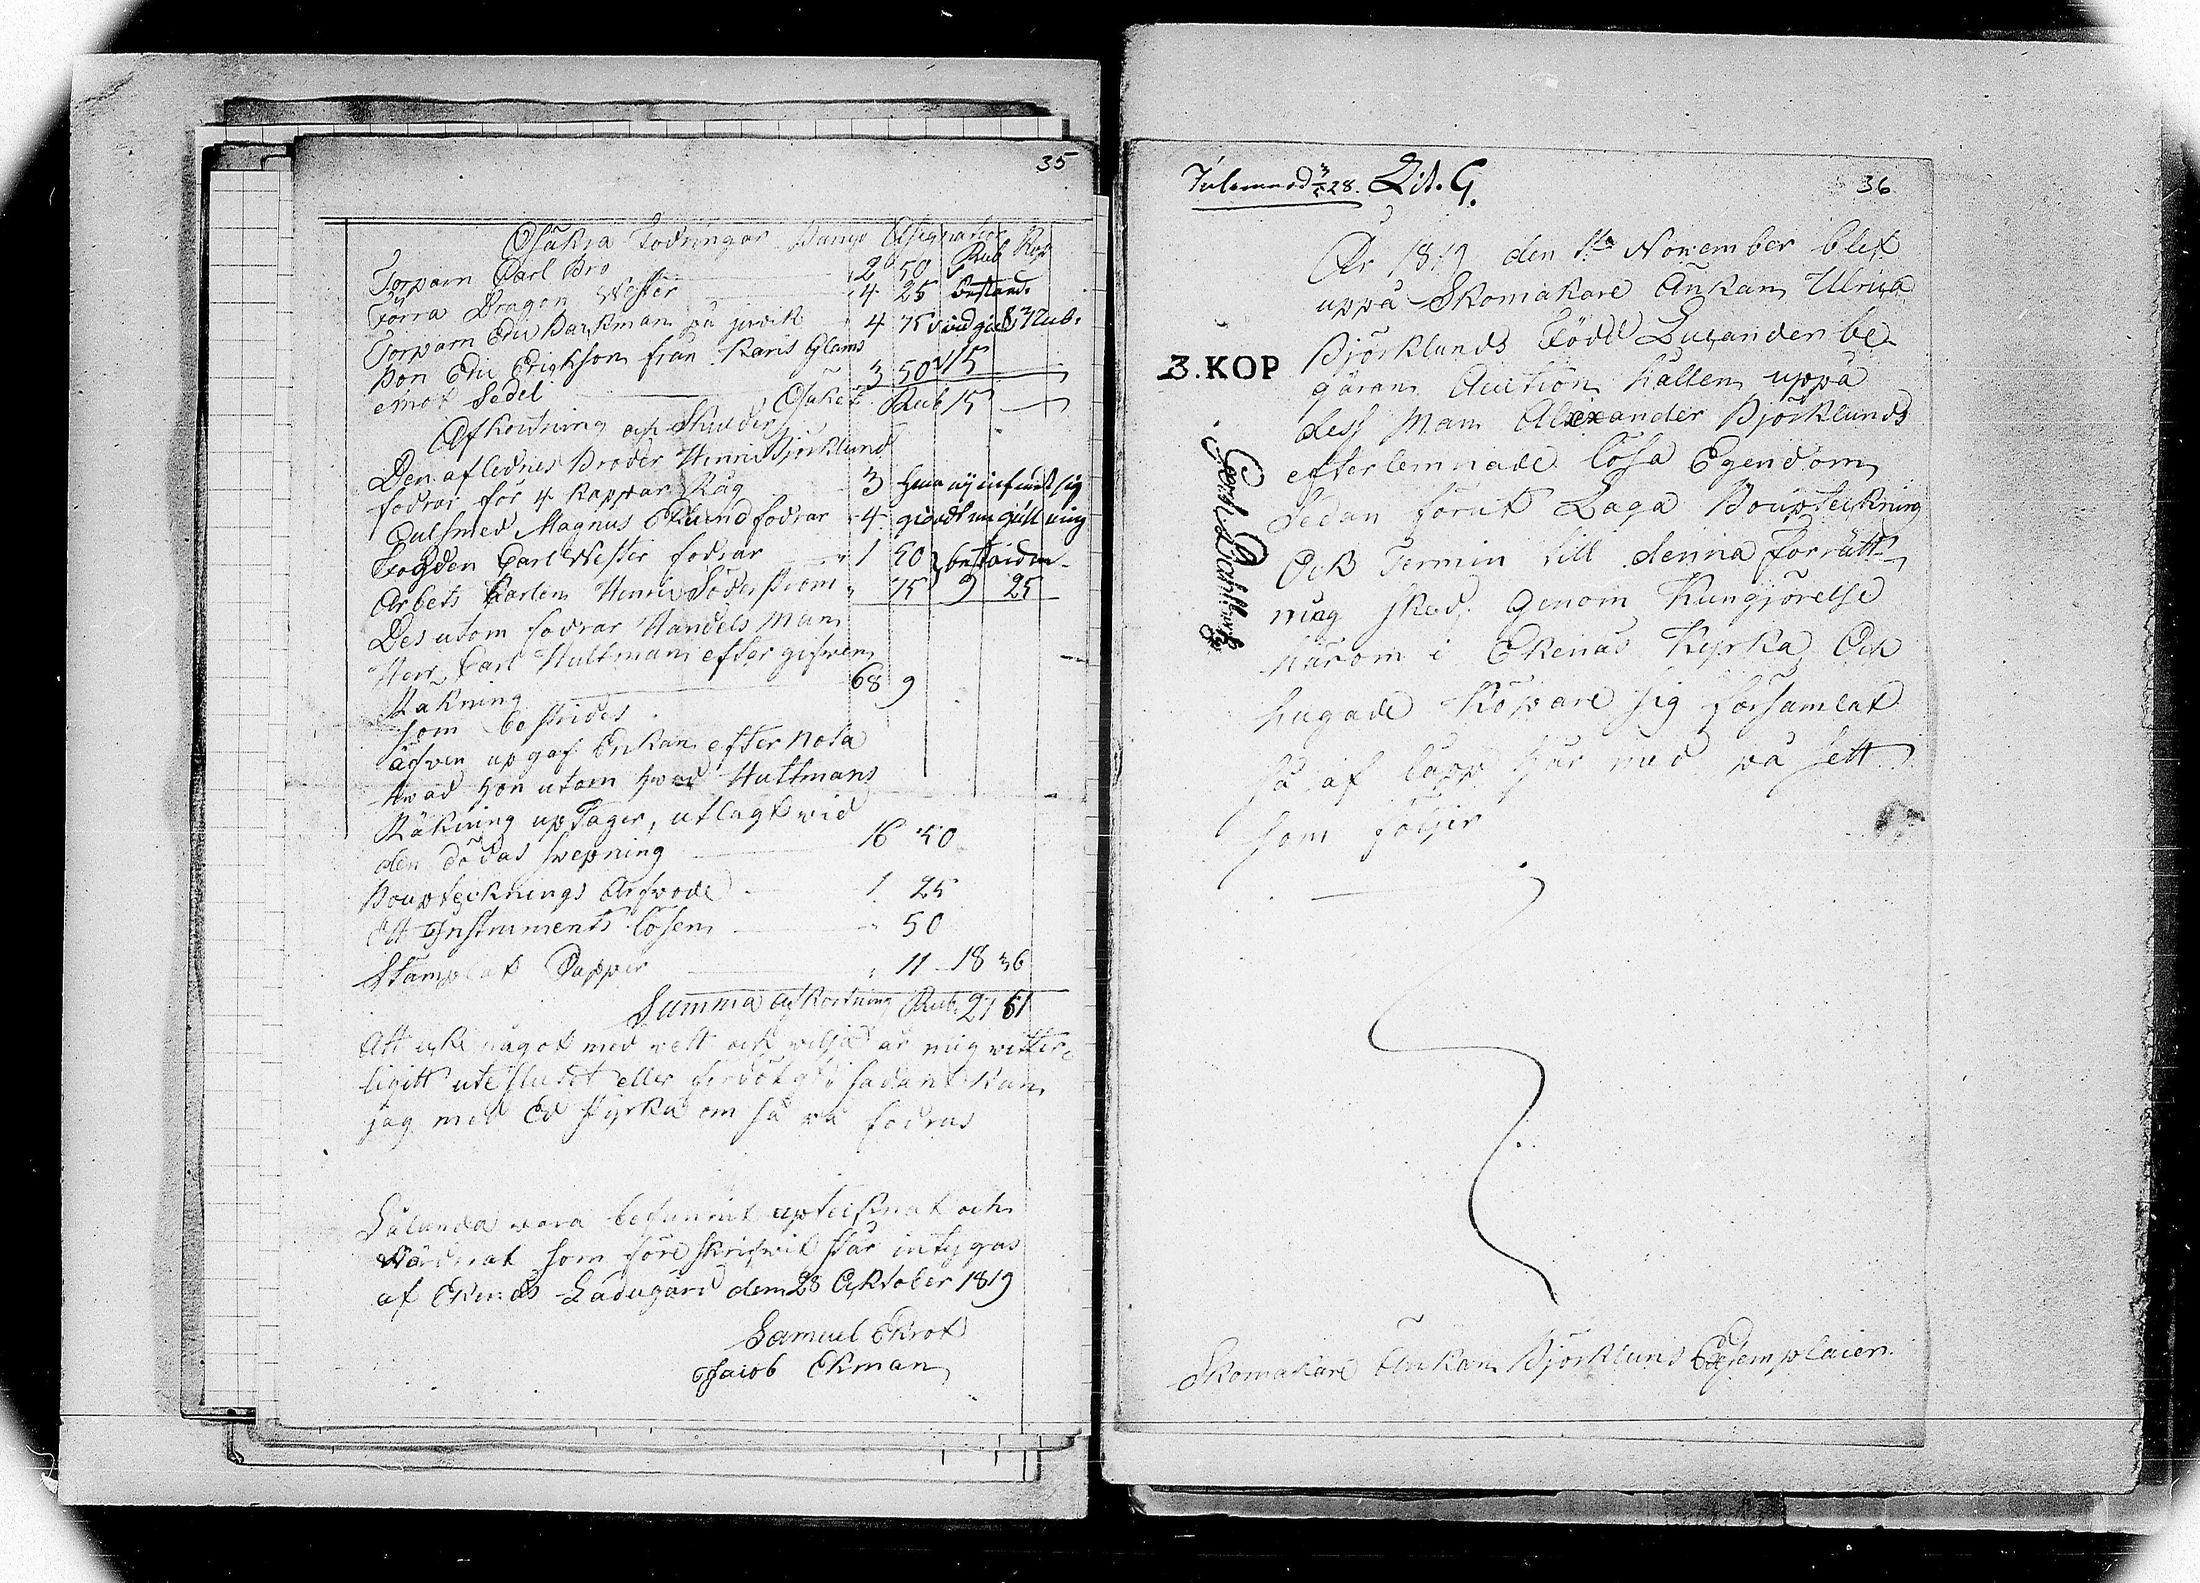 35
Osäkra Fodringar Banco Assignatio
Rub Kop
Torparn Carl Bro 2 50
Förra Dragon Wester 4 25 bestrids
Torparn Eric Barkman på 4 75 vidgick 3 Rub.
Bon Eric Erickson från Karis
emot Sedel 3 50 15
Osäkert Rub 15
Afkortning och Skulder
Den aflednes Broder Henric Björklund
fodrar för 4 kappar Råg 3
Gulsmed Magnus Eklund fodrar 4
Fogden Carl Wester fodrar 1 50
Arbets Karlen Henric Söderström 75 9 25
Des utom fodrar Handels Man
Herr Carl Hultman efter gifven
Räkning 68 9
som bestrides
äfven up gaf Enkan efter Nota
hvad hon utom hvad Hultmans
Räkning uptager, utlagt vid
den dödas svepning 16 50
Boupteknings Arfvode 1 25
Ett Instruments lösen 50
Stämplat Papper 11 18 36
Summa afkortning Rub. 27 61
Att icke något med vett och vilja är mig vitter-
ligitt uteslutit eller fördölgt, sådant kan
jag med Ed styrka om så på fodras
Sålunda vara befunnit upteknat och
Värderat som före skrifvit står intygas
af Ekenäs Ladugård dem 28 Oktober 1819
Samuel Ekrot
Jacob Ekman
36
Lit. G.
År 1819 den 1sta November blef
uppå Skomakare Änkan Ulrica
Björklunds Född Lucander be-
gäran Auction hållen uppå
dess Man Alexander Björklunds
efterlemnade lösa Egendom
Sedan förut Laga Bouptekning
Och Termin till denna Förrätt-
ning sked, genom Kungjörelse
härom i Ekenäs Kyrka Och
hugade Köpare sig församlat
så af lopp här med på sett
som följer
3. KOP
Skomakare Änkan Björklunds Exsemplaren